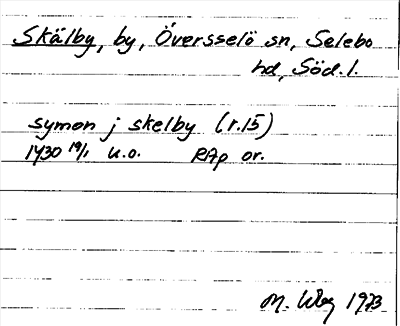 Skälby, by, Överselö sn, Selebo
hd, Söd. l.
symon j skelby (r.15)
1430 19/1 u.o. RAp or.
M. 1973